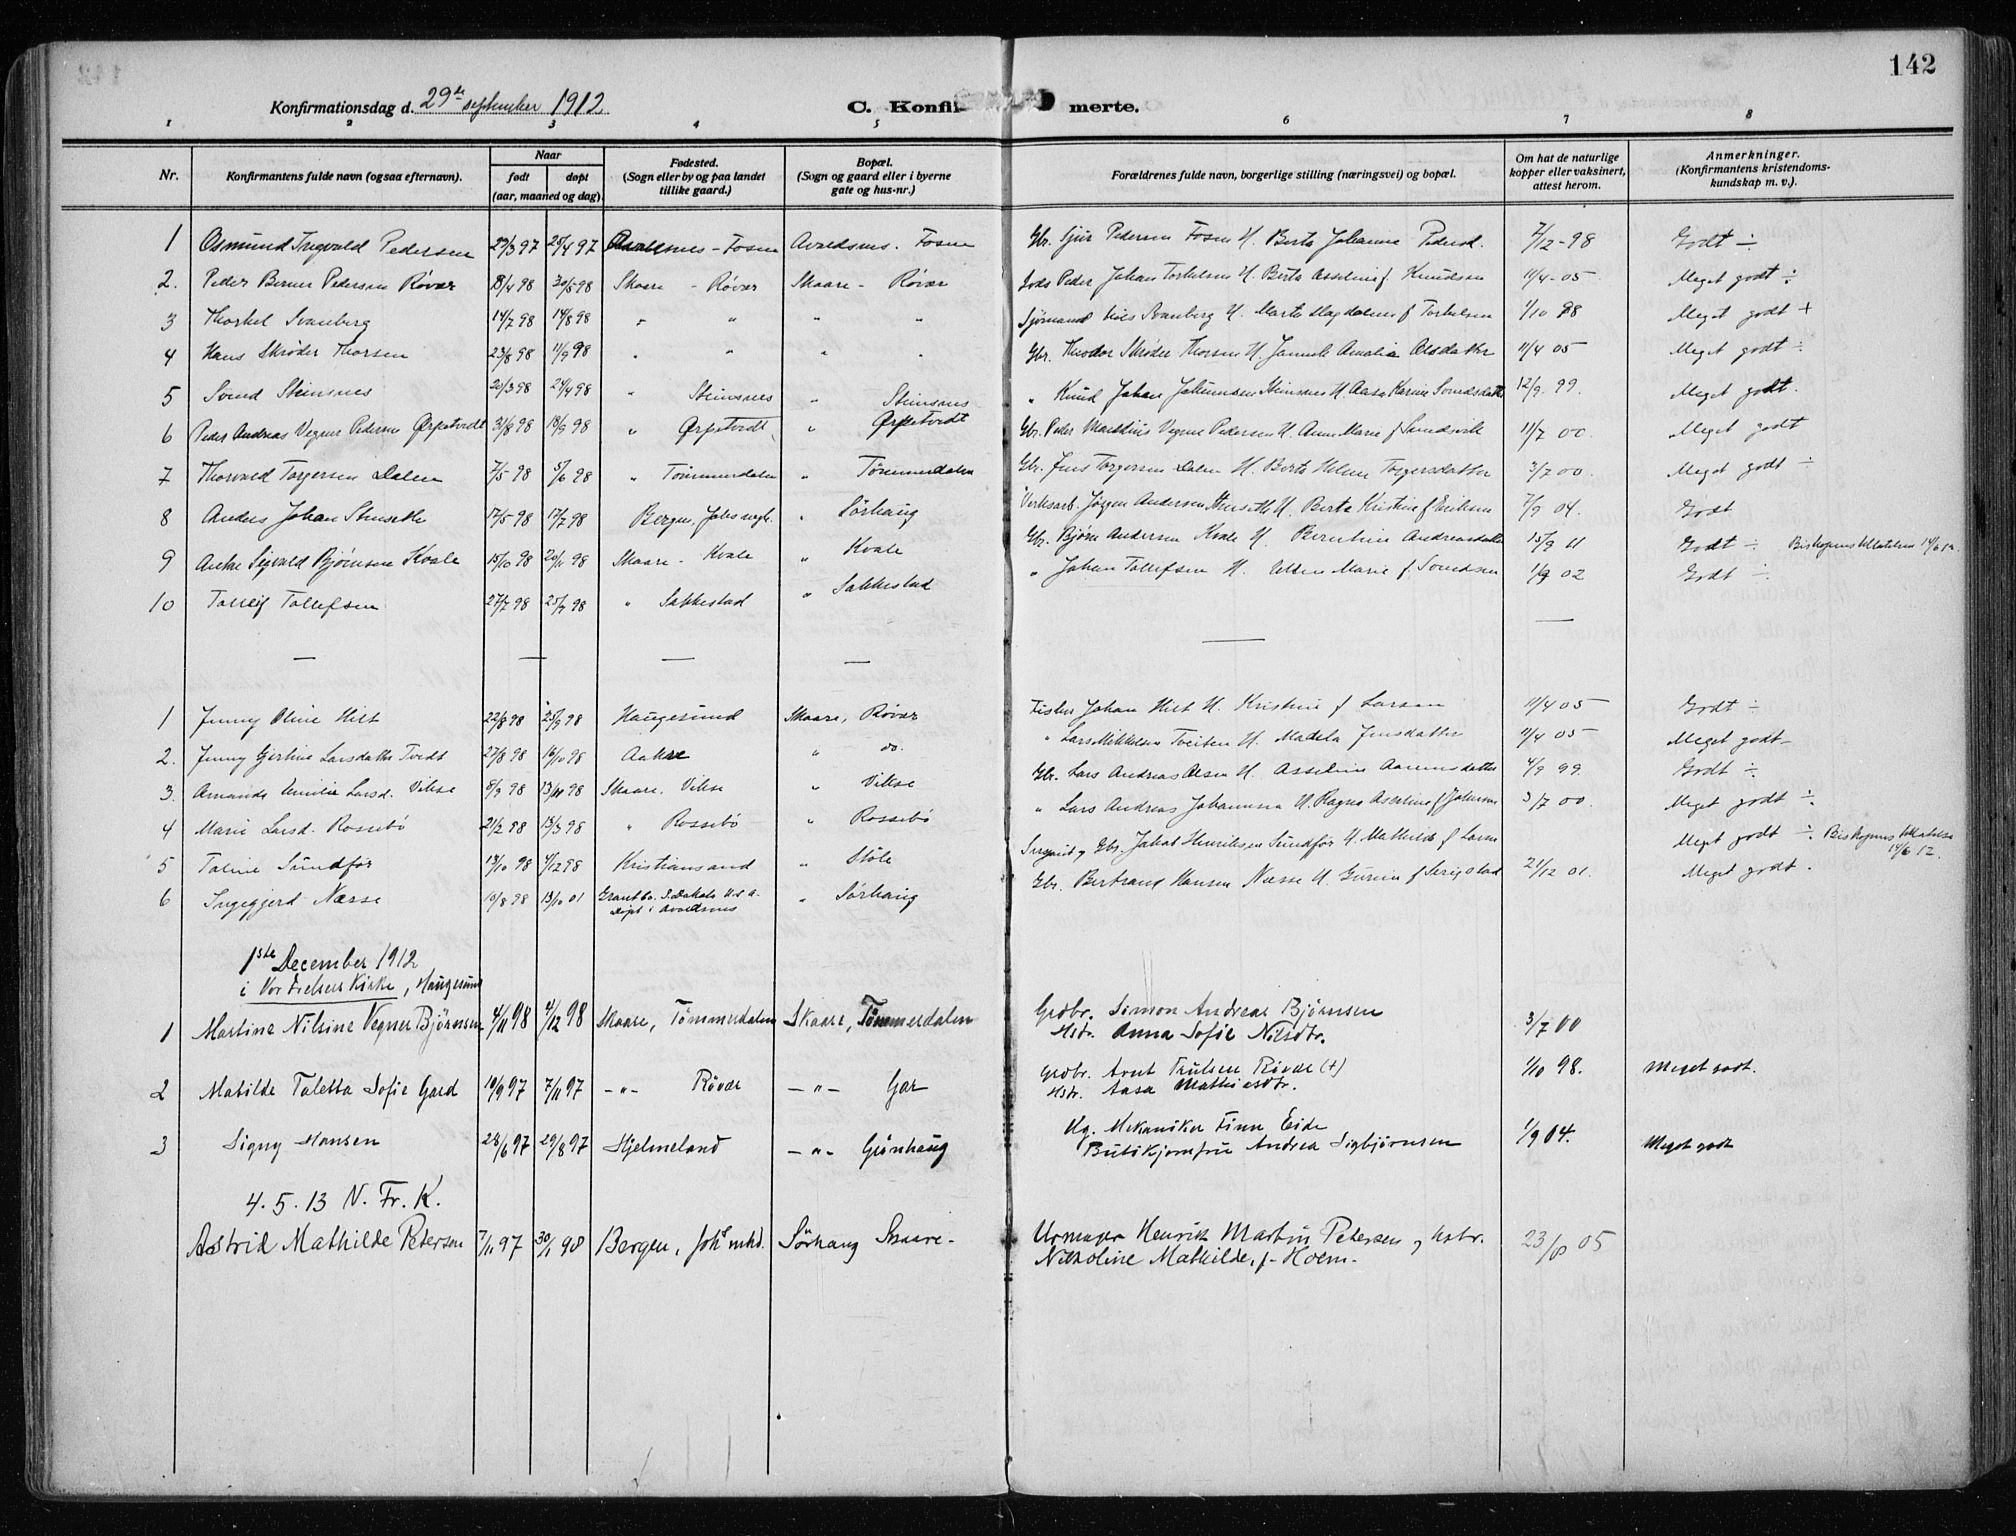 142
Konfirmationsdag d. 29de september 1912
C. Konfirmerte.
1 2 3 4 5 6 7 8
Nr. Konfirmantens fulde navn (ogsaa efternavn). Naar født døpt (aar, maaned og dag). Fødested. (Sogn eller by og paa landet tillike gaard.) Bopæl. (Sogn og gaard eller i byerne gate og hus-nr.) Forældrenes fulde navn, borgerlige stilling (næringsvei) og bopæl. Om hat de naturlige kopper eller vaksinert, attest herom. Anmerkninger. (Konfirmantens kristendomskundskap m. v.).
1 Osmund Trygvald Pedersen 29/3 97 25/4 97 Avaldsnes - Fosen Avaldsnes. Fosen Gbr. Sjur Pedersen Fosen H. Berta Johanna Pedersd. 7/12-98 Godt ÷
2. Peder Berner Pedersen Røvær 18/4 98 30/5 98 Skaare - Røvær Skaare - Røvær Peder Johan Torkelsen H. Berta Asseline f. Knudsen 11/4-05 Meget godt ÷
3 Thorkel Svanberg 14/7 98 14/8 98 " " " " Sjømand Nils Svanberg H. Marta Magdalena f Torkelsen 1/10 98 Meget godt +
4 Hans Skrøder Thorsen 23/8 98 11/9 98 " " " " Gbr. Theodor Skrøder Thorsen H. Amalia Olsdatter 11/4 05 Meget godt ÷
5 Svend Steinsnes 20/3 98 24/4 98 " Steinsnes " Steinsnes " Knud Johan Johannesen Steinsnes H. Aasa Karine Svendsdatter 12/9. 99. Meget godt.
6 Peder Andreas Vegner Pedersen Ørpetvedt 31/8 98 18/9 98 " Ørpetvedt " Ørpetvedt Gbr. Peder Martinus Vegner Pedersen H. Anne Marie f Sundsvik 11/7 00. Meget godt
7 Thorvald Torgersen Dalen 7/5 98 5/6 98 " Tömmerdalen " Tömmerdalen Gbr. Jens Torgersen Dalen H. Berta Helene Torgersdatter 3/7 00. Meget godt ÷
8 Anders Johan Stenseth 17/5 98 17/7 98 Bergen, " Sörhaug Verksarb. Jørgen Andersen Stenseth H. Berta Kristine f Eriksen 7/9 04. Godt
9 Anthe Sigvald Bjørnsen Kvale 15/10 98 20/11 98 Skaare - Kvale " Kvale Gbr. Bjørn Andersen Kvale H. Berentine Andreasdatter 15/9 11 Godt ÷ Biskopens tilladelse 14/6 12.
10 Torleif Tollefsen 27/7 98 25/9 98 " Sakkestad " Sakkestad " Johan Tollefsen H. Ellen Marie f. Svendsen 1/9 02 Godt ÷
1 Jenny Oline Hilt 22/8 98 25/9 98 Haugesund Skaare, Røvær Fisker Johan Hilt H. Kristine f Larsen 11/4 05 Godt ÷
2. Jenny Gjertine Larsdatter Tvedt 27/8 98 16/10 98 Aakre " do. " Lars Mikkelsen Tveiten H. Madela Jensdatter 11/4 05 Meget godt
3. Amanda Emilie Larsd. Vikse 8/9 98 13/11 98 Skaare, Vikse " Vikse Gbr. Lars Andreas Olsen H. Asseline Aamundsdatter 4/9 99. Godt ÷
4 Marie Larsd. Rossebö 21/2 98 13/3 98 " Rossebö " Rossebö " Lars Andreas Johannesen H. Ragna Asseline f Johnsen 3/7 00. Meget godt ÷
5 Taline Sundför 13/10 98 4/12 98 Kristiansand " Stöle Sergeant og Gbr. Jakob Henriksen Sundför H. Mathilde f Larsen Meget godt ÷. Biskopens tilladelse 14/6 12.
6 Ingegjerd Næsse 10/8 98 13/10 01 Grant Co. S. Dakota U.S.A. Døpt i Avaldsnes " Sörhaug Gbr. Bertrand Hansen Næsse H. Gurine f Serigstad 21/12 01. Meget godt.
1ste December 1912
i Vor Frelsers Kirke, Haugesund
1 Martine Nilsine Vegner Bjørnsen 4/11 98 4/12 98 Skaare, Tömmerdalen Skaare, Tömmerdalen Grdbr. Simon Andreas Bjørnsen
Hstr. Anna Sofie Nilsdtr. 3/7 00
2 Matilde Taletta Sofie Gard 19/9 97 7/11 97 -"- Røvær -"- Gar Grdbr. Arnt Trulsen Røvær (+)
Hstr. Aasa Mathiasdtr. 1/10 98. Meget godt.
3 Signy Hansen 28/6 97 29/8 97 Hjelmeland -"- Grönhaug Ug. Mekaniker Finn Eide
Butikjomfru Andrea Sigbjørnsen 1/9 04. Meget godt
4. 5. 13 V. Fr. K.
Astrid Mathilde Petersen 7/11 97 30/1 98 Bergen, Johs mkd. Sörhaug Skaare - Urmager Henrik Martin Petersen og hstr.
Nikoline Mathilde, f. Holm. 23/8 05